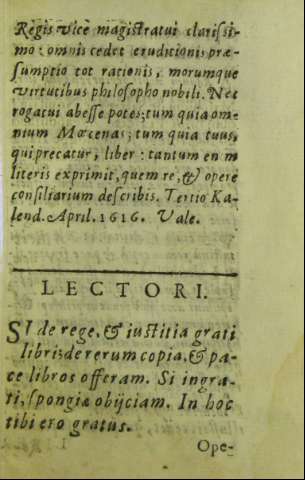 Regis vice magistratui clarissi-
mo: omnis cedet eruditionis præ-
sumptio tot rationis, morumque
virtutibus philosopho nobili. Nec
rogatui abesse potes; tum quia om-
nium Mœcenas; tum quia tuus,
qui precatur, liber: tantum en m
literis exprimit, quem re, & opere
consiliarium describis. Tertio Ka-
lend. April. 1616. Vale.
LECTORI.
SI de rege, & iustitia grati
libri; de rerum copia, & pa-
ce libros offeram. Si ingra-
ti, spongiæ obijciam. In hoc
tibi ero gratus.
Ope-